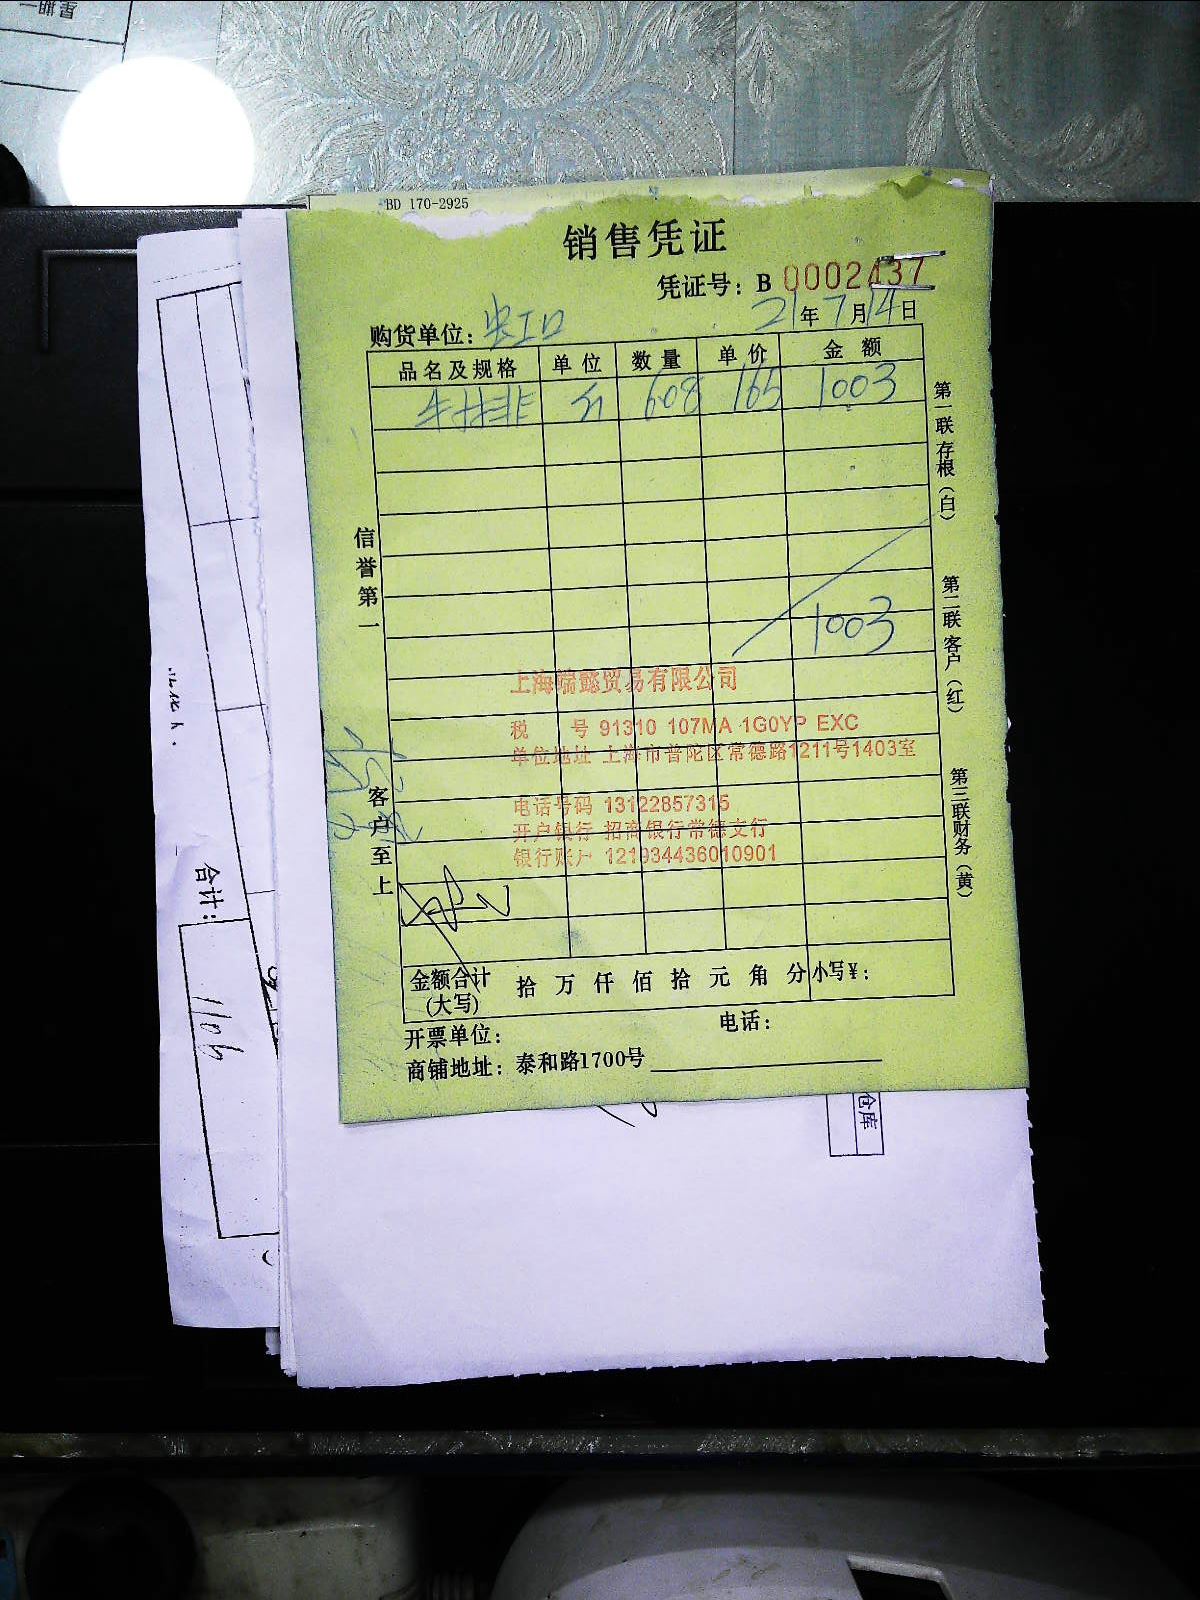 星期一
BD 170-2925
销售凭证
凭证号：B 0002437
购货单位：长江口 21年7月14日
品名及规格 单位 数量 单价 金额
牛林排 斤 608 165 1003
1003
信誉第一
客户至上
第一联存根（白）
第二联客户（红）
第三联财务（黄）
上海端懿贸易有限公司
税 号 91310 107MA 1G0YP EXC
单位地址 上海市普陀区常德路1211号1403室
电话号码 13122857315
开户银行 招商银行常德支行
银行账户 121934436010901
金额合计(大写) 拾 万 仟 佰 拾 元 角 分 小写¥：
开票单位： 电话：
商铺地址：泰和路1700号
合计：
1106
仓库